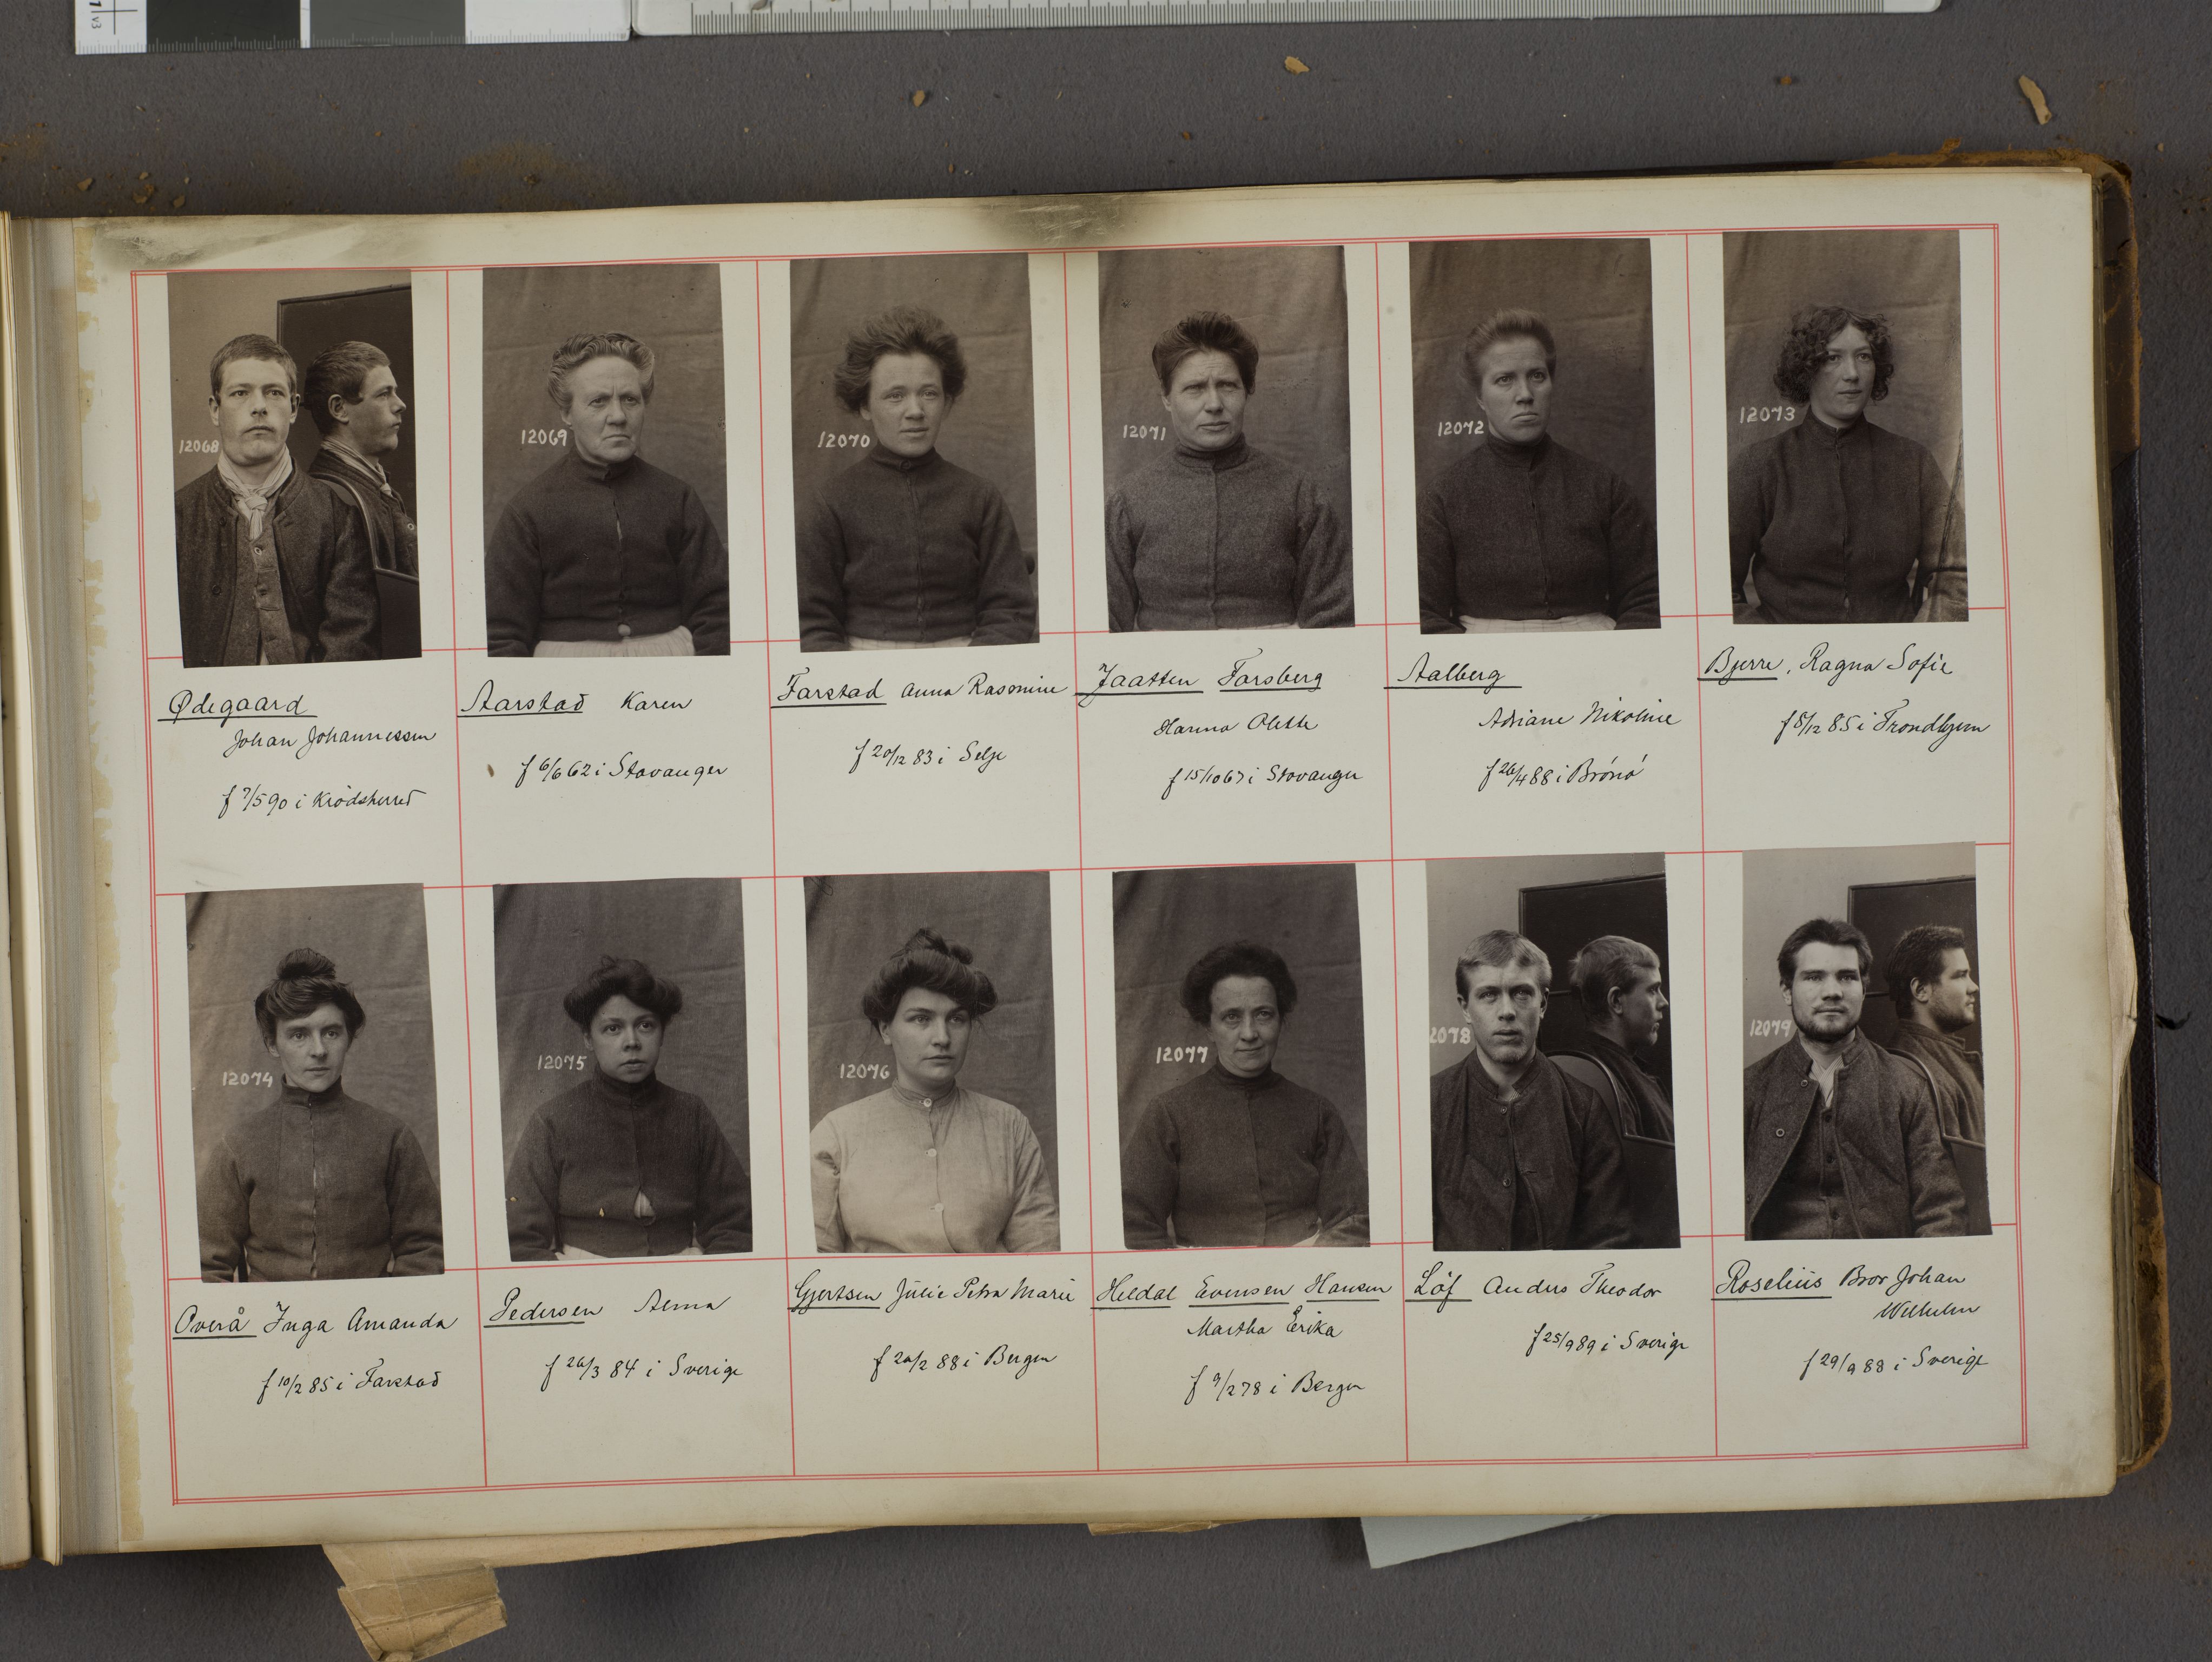 12068
12069
12070
12071
12072
12073
Ødegaard
Johan Johannessen
f 7/5 90 i Krödsherred
Aarstad Karen
f 6/6 62 i Stavanger
Farstad Anna Rasmine
f 20/12 83 i Selje
Jaatten Forsberg
Hanna Olette
f 15/10 67 i Stavanger
Aalberg
Adriane Nikoline
f 26/4 88 i Brönö
Bjerre, Ragna Sofie
f 5/12 85 i Trondhjem
12074
12075
12076
12077
2078
12079
Overå Inga Amanda
f 10/2 85 i Farstad
Pedersen Alma
f 26/3 84 i Sverige
Gjertsen Julie Petra Marie
f 20/2 88 i Bergen
Heldal Evensen Hansen
Martha Erika
f 9/2 78 i Bergen
Löf Anders Theodor
f 25/9 89 i Sverige
Roselius Bror Johan
Wilhelm
f 29/9 88 i Sverige